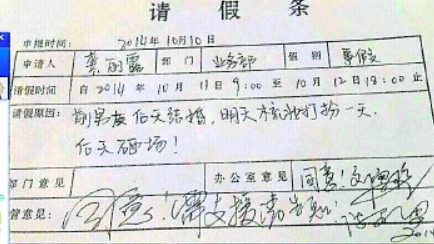 请假条
申报时间: 2014年10月10日
申请人 龚丽露 部门 业务部 假别 事假
请假时间 自2014 10月11日9:00至10月12日18:00止
请假原因: 前男友后天结婚,明天梳妆打扮一天.
后天砸场!
部门意见 办公室意见 同意!
管意见: 同意!需支援请告知!